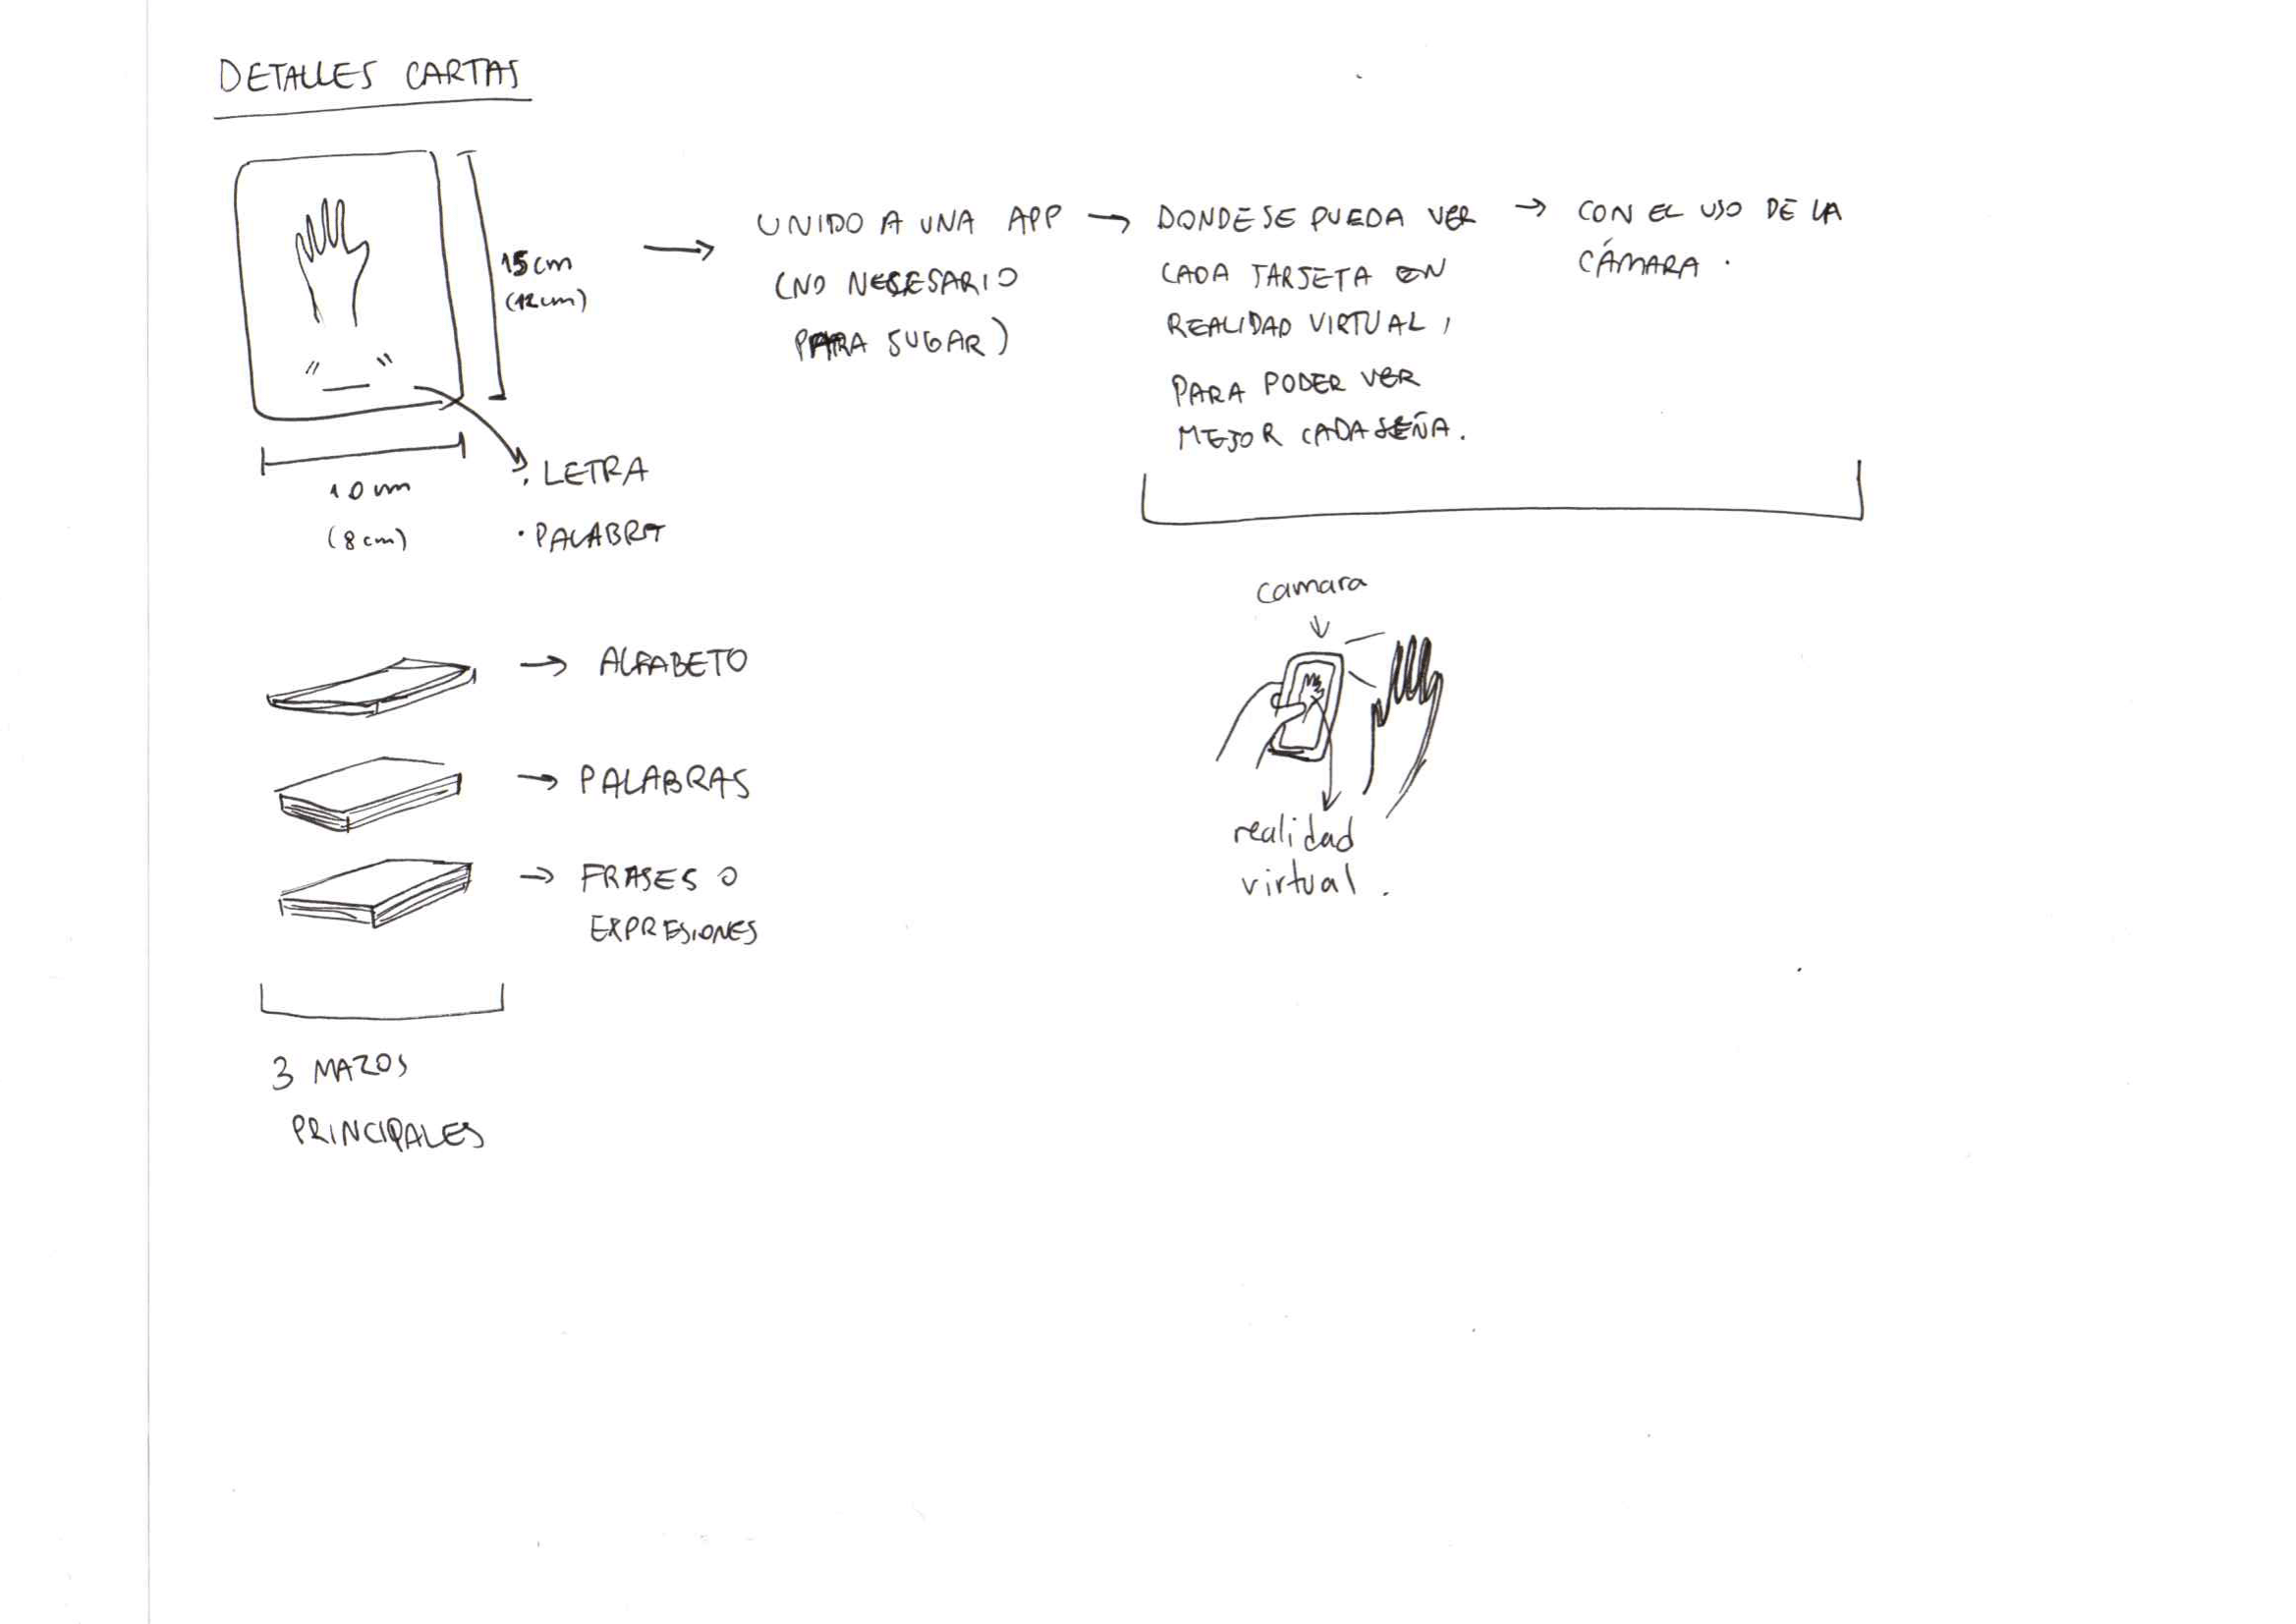 DETALLES CARTAS
15cm
(12cm)
10cm
(8cm)
" _ "
• LETRA
• PALABRA
→ UNIDO A UNA APP
(NO NECESARIO
PARA JUGAR)
→ DONDE SE PUEDA VER
CADA TARJETA EN
REALIDAD VIRTUAL,
PARA PODER VER
MEJOR CADA SEÑA.
→ CON EL USO DE LA
CÁMARA.
camara
realidad
virtual.
→ ALFABETO
→ PALABRAS
→ FRASES O
EXPRESIONES
3 MAZOS
PRINCIPALES